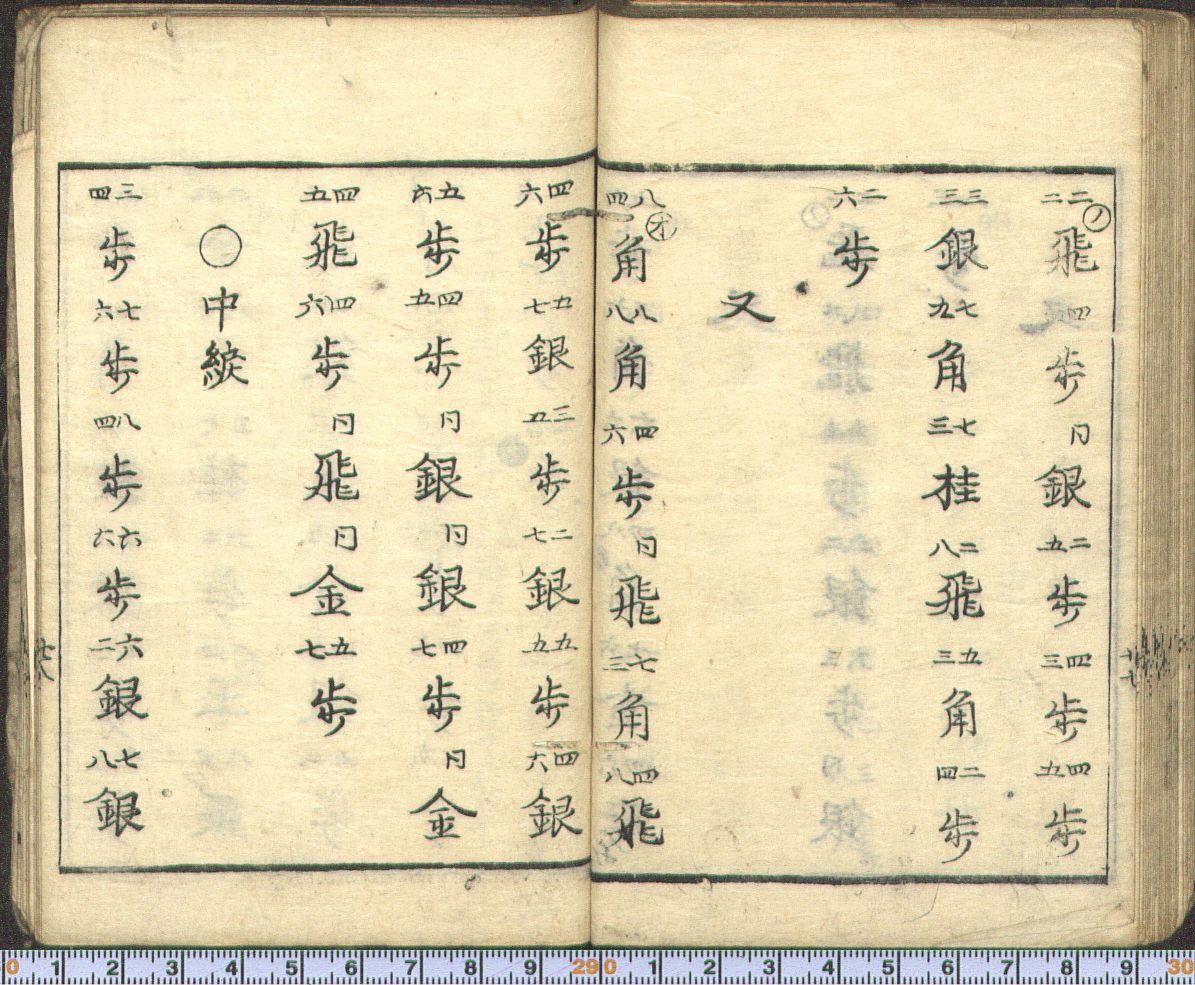 ㋨二二飛 四歩 同銀 二五歩 四三歩 四五歩
三三銀 七九角 七三桂 二八飛 五三角 二四歩
二六歩
又
㋔八四角 八八角 四六歩 同飛 七三角 四八飛
十七
四六歩 五七銀 三五歩 二七銀 五五歩 四六銀
五六歩 四五歩 同銀 同銀 四七歩 同金
四五飛 四六歩 同飛 同金 五七歩
○中綻
三四歩 七六歩 八四歩 六六歩 六二銀 七八銀